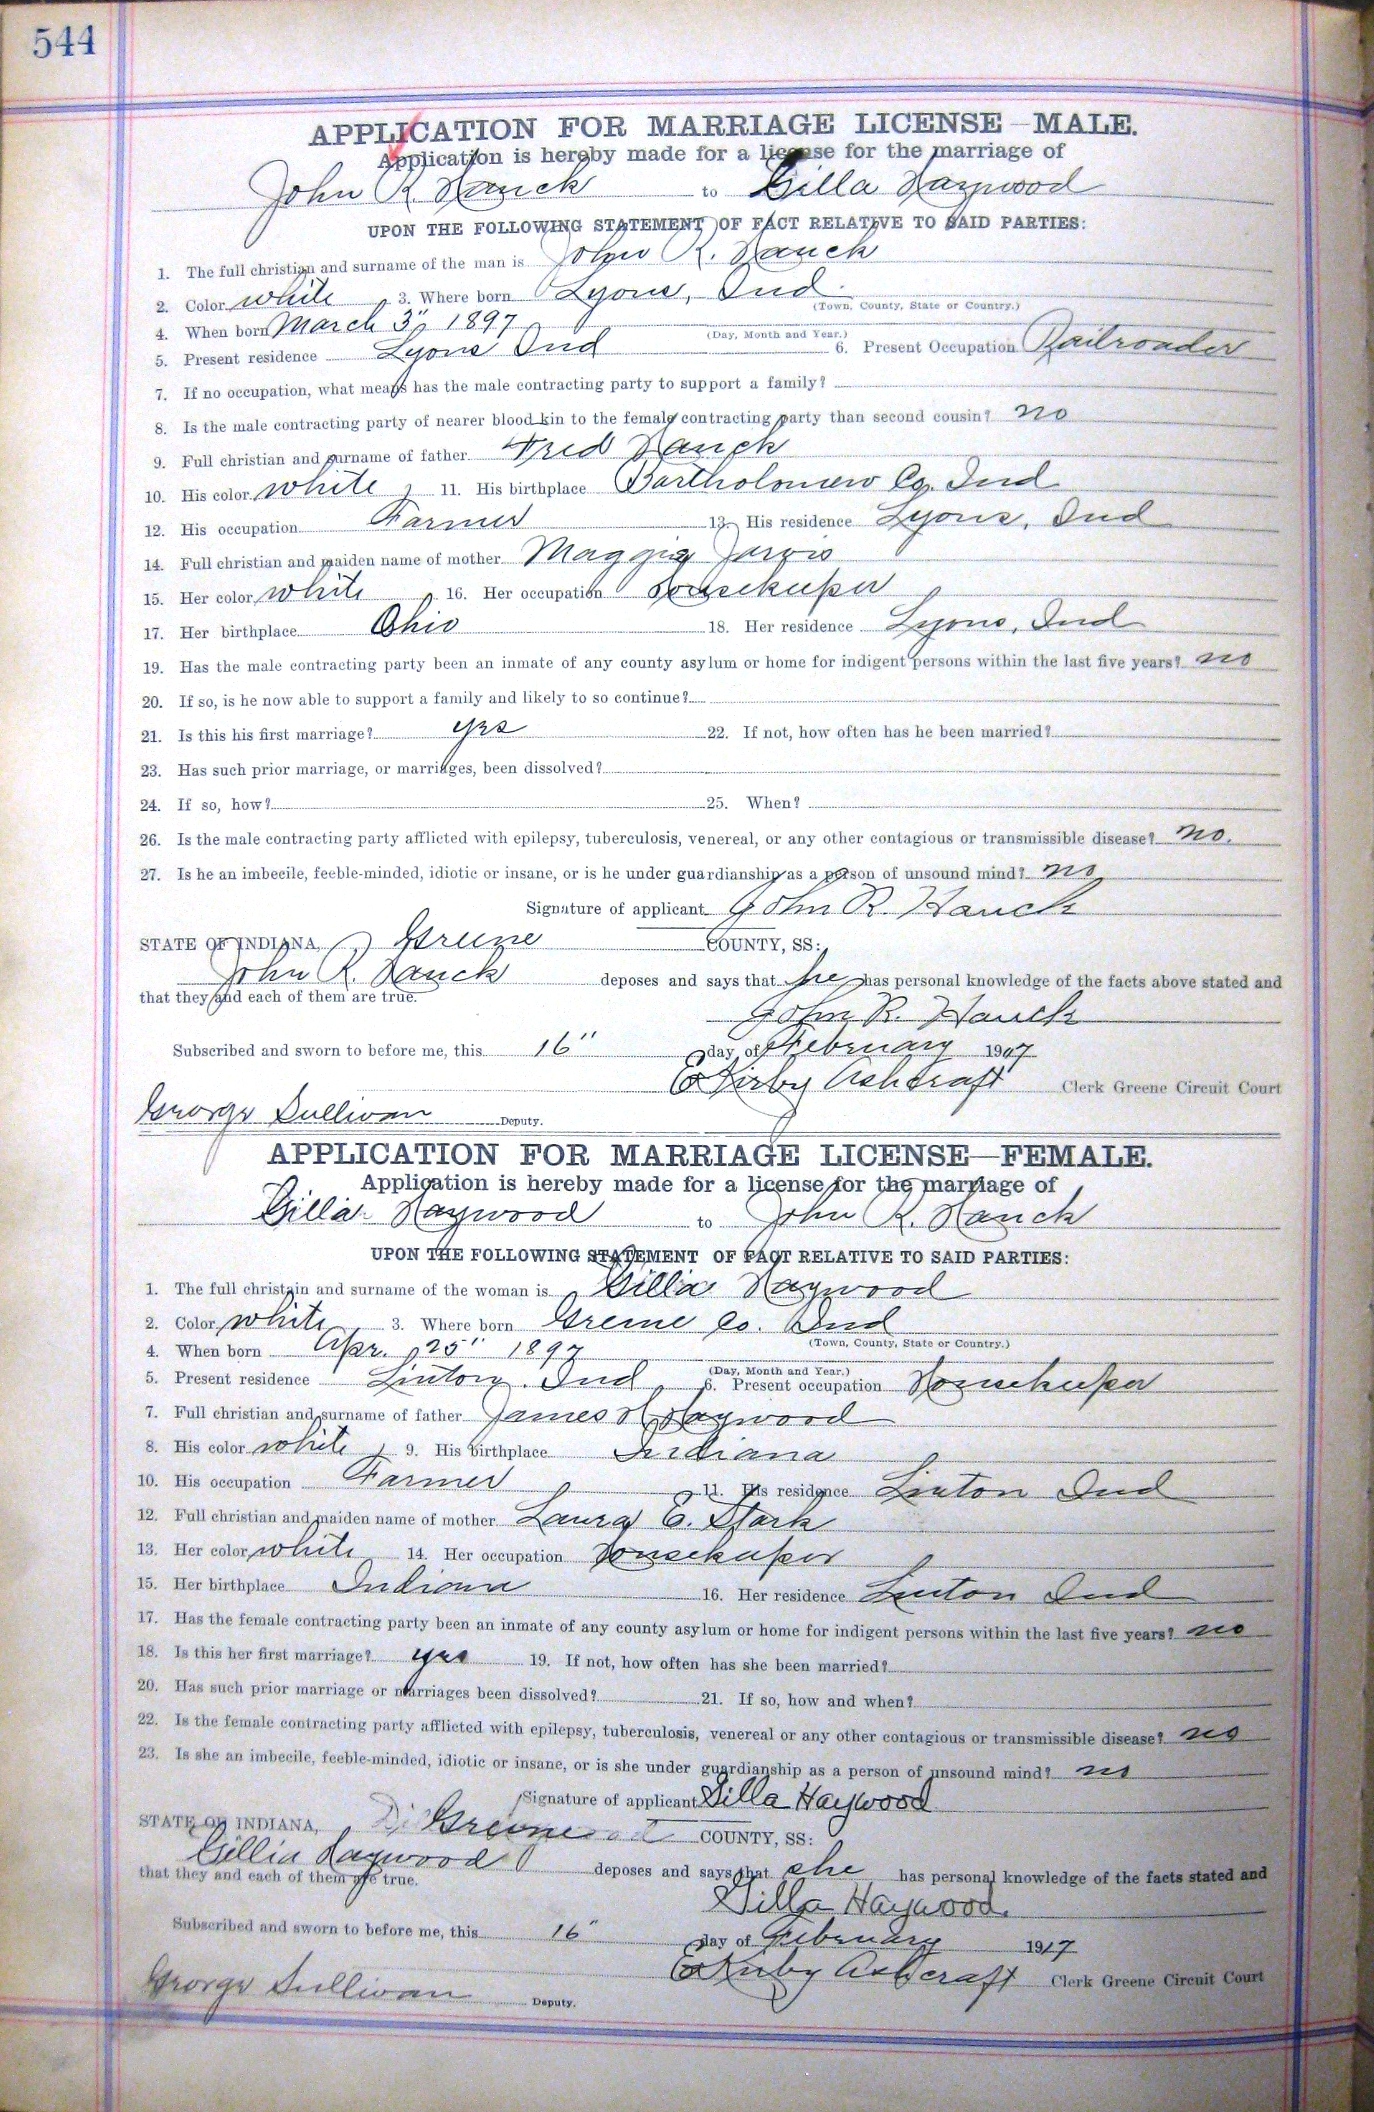 544
APPLICATION FOR MARRIAGE LICENSE—MALE.
Application is hereby made for a license for the marriage of
John R. Hauck to Gilla Haywood
UPON THE FOLLOWING STATEMENT OF FACT RELATIVE TO SAID PARTIES:
1. The full christian and surname of the man is John R. Hauck
2. Color white 3. Where born Lyons, Ind.
(Town, County, State or Country.)
4. When born March 3" 1897
(Day, Month and Year.)
5. Present residence Lyons Ind 6. Present Occupation Railroader
7. If no occupation, what means has the male contracting party to support a family?
8. Is the male contracting party of nearer blood kin to the female contracting party than second cousin? no
9. Full christian and surname of father Fred Hauck
10. His color white 11. His birthplace Bartholomew Co. Ind
12. His occupation Farmer 13. His residence Lyons, Ind
14. Full christian and maiden name of mother Maggie Jarvis
15. Her color white 16. Her occupation Housekeeper
17. Her birthplace Ohio 18. Her residence Lyons, Ind
19. Has the male contracting party been an inmate of any county asylum or home for indigent persons within the last five years? no
20. If so, is he now able to support a family and likely to so continue?
21. Is this his first marriage? yes 22. If not, how often has he been married?
23. Has such prior marriage, or marriages, been dissolved?
24. If so, how? 25. When?
26. Is the male contracting party afflicted with epilepsy, tuberculosis, venereal, or any other contagious or transmissible disease? no.
27. Is he an imbecile, feeble-minded, idiotic or insane, or is he under guardianship as a person of unsound mind? no
Signature of applicant John R. Hauck
STATE OF INDIANA, Greene COUNTY, SS:
John R. Hauck deposes and says that he has personal knowledge of the facts above stated and
that they and each of them are true.
John R. Hauck
Subscribed and sworn to before me, this 16" day of February 1917
E Kirby Ashcraft Clerk Greene Circuit Court
George Sullivan Deputy.
APPLICATION FOR MARRIAGE LICENSE—FEMALE.
Application is hereby made for a license for the marriage of
Gilla Haywood to John R. Hauck
UPON THE FOLLOWING STATEMENT OF FACT RELATIVE TO SAID PARTIES:
1. The full christain and surname of the woman is Gilla Haywood
2. Color white 3. Where born Greene Co. Ind
(Town, County, State or Country.)
4. When born Apr. 25" 1897
(Day, Month and Year.)
5. Present residence Linton, Ind 6. Present occupation Housekeeper
7. Full christian and surname of father James H Haywood
8. His color white 9. His birthplace Indiana
10. His occupation Farmer 11. His residence Linton Ind
12. Full christian and maiden name of mother Laura E. Stark
13. Her color white 14. Her occupation Housekeeper
15. Her birthplace Indiana 16. Her residence Linton Ind
17. Has the female contracting party been an inmate of any county asylum or home for indigent persons within the last five years? no
18. Is this her first marriage? yes 19. If not, how often has she been married?
20. Has such prior marriage or marriages been dissolved? 21. If so, how and when?
22. Is the female contracting party afflicted with epilepsy, tuberculosis, venereal or any other contagious or transmissible disease? no
23. Is she an imbecile, feeble-minded, idiotic or insane, or is she under guardianship as a person of unsound mind? no
Signature of applicant Gilla Haywood
STATE OF INDIANA, Greene COUNTY, SS:
Gillia Haywood deposes and says that she has personal knowledge of the facts stated and
that they and each of them are true.
Gilla Haywood.
Subscribed and sworn to before me, this 16" day of February 1917
E Kirby Ashcraft Clerk Greene Circuit Court
George Sullivan Deputy.